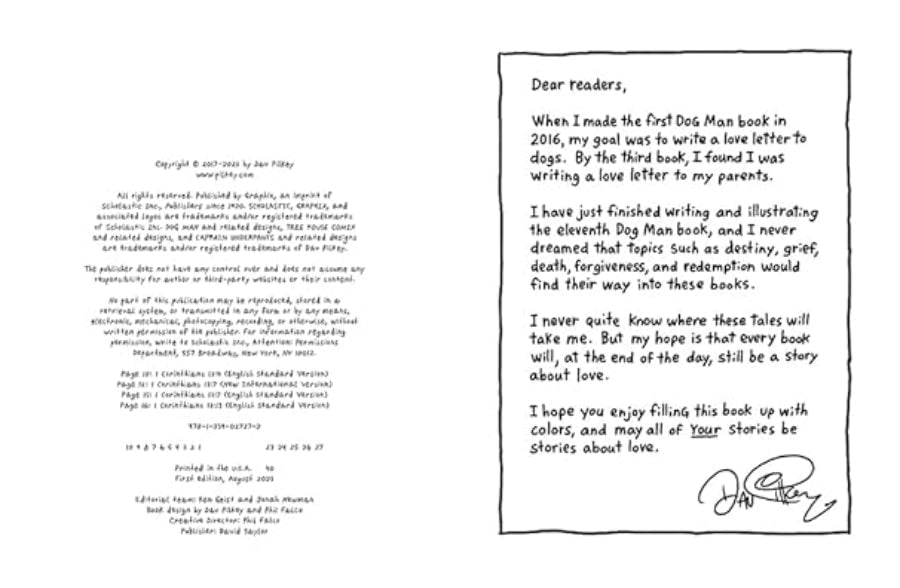 Copyright © 2017-2023 by Dav Pilkey
www.pilkey.com
All rights reserved. Published by Graphix, an imprint of
Scholastic Inc., Publishers since 1920. SCHOLASTIC, GRAPHIX, and
associated logos are trademarks and/or registered trademarks
of Scholastic Inc. DOG MAN and related designs, TREE HOUSE COMIX
and related designs, and CAPTAIN UNDERPANTS and related designs
are trademarks and/or registered trademarks of Dav Pilkey.
The publisher does not have any control over and does not assume any
responsibility for author or third-party websites or their content.
No part of this publication may be reproduced, stored in a
retrieval system, or transmitted in any form or by any means,
electronic, mechanical, photocopying, recording, or otherwise, without
written permission of the publisher. For information regarding
permission, write to Scholastic Inc., Attention: Permissions
Department, 557 Broadway, New York, NY 10012.
1 Corinthians (English Standard Version)
1 Corinthians 13:7 (New International Version)
1 Corinthians 13:7 (English Standard Version)
1 Corinthians 13:13 (English Standard Version)
10 9 8 7 6 5 4 3 2 1 23 24 25 26 27
Printed in the U.S.A. 40
First edition, August 2023
Editorial team: Ken Geist and Jonah Newman
Book design by Dav Pilkey and Phil Falco
Creative Director: Phil Falco
Publisher: David Saylor
Dear readers,
When I made the first Dog Man book in
2016, my goal was to write a love letter to
dogs. By the third book, I found I was
writing a love letter to my parents.
I have just finished writing and illustrating
the eleventh Dog Man book, and I never
dreamed that topics such as destiny, grief,
death, forgiveness, and redemption would
find their way into these books.
I never quite know where these tales will
take me. But my hope is that every book
will, at the end of the day, still be a story
about love.
I hope you enjoy filling this book up with
colors, and may all of Your stories be
stories about love.
Dav Pilkey